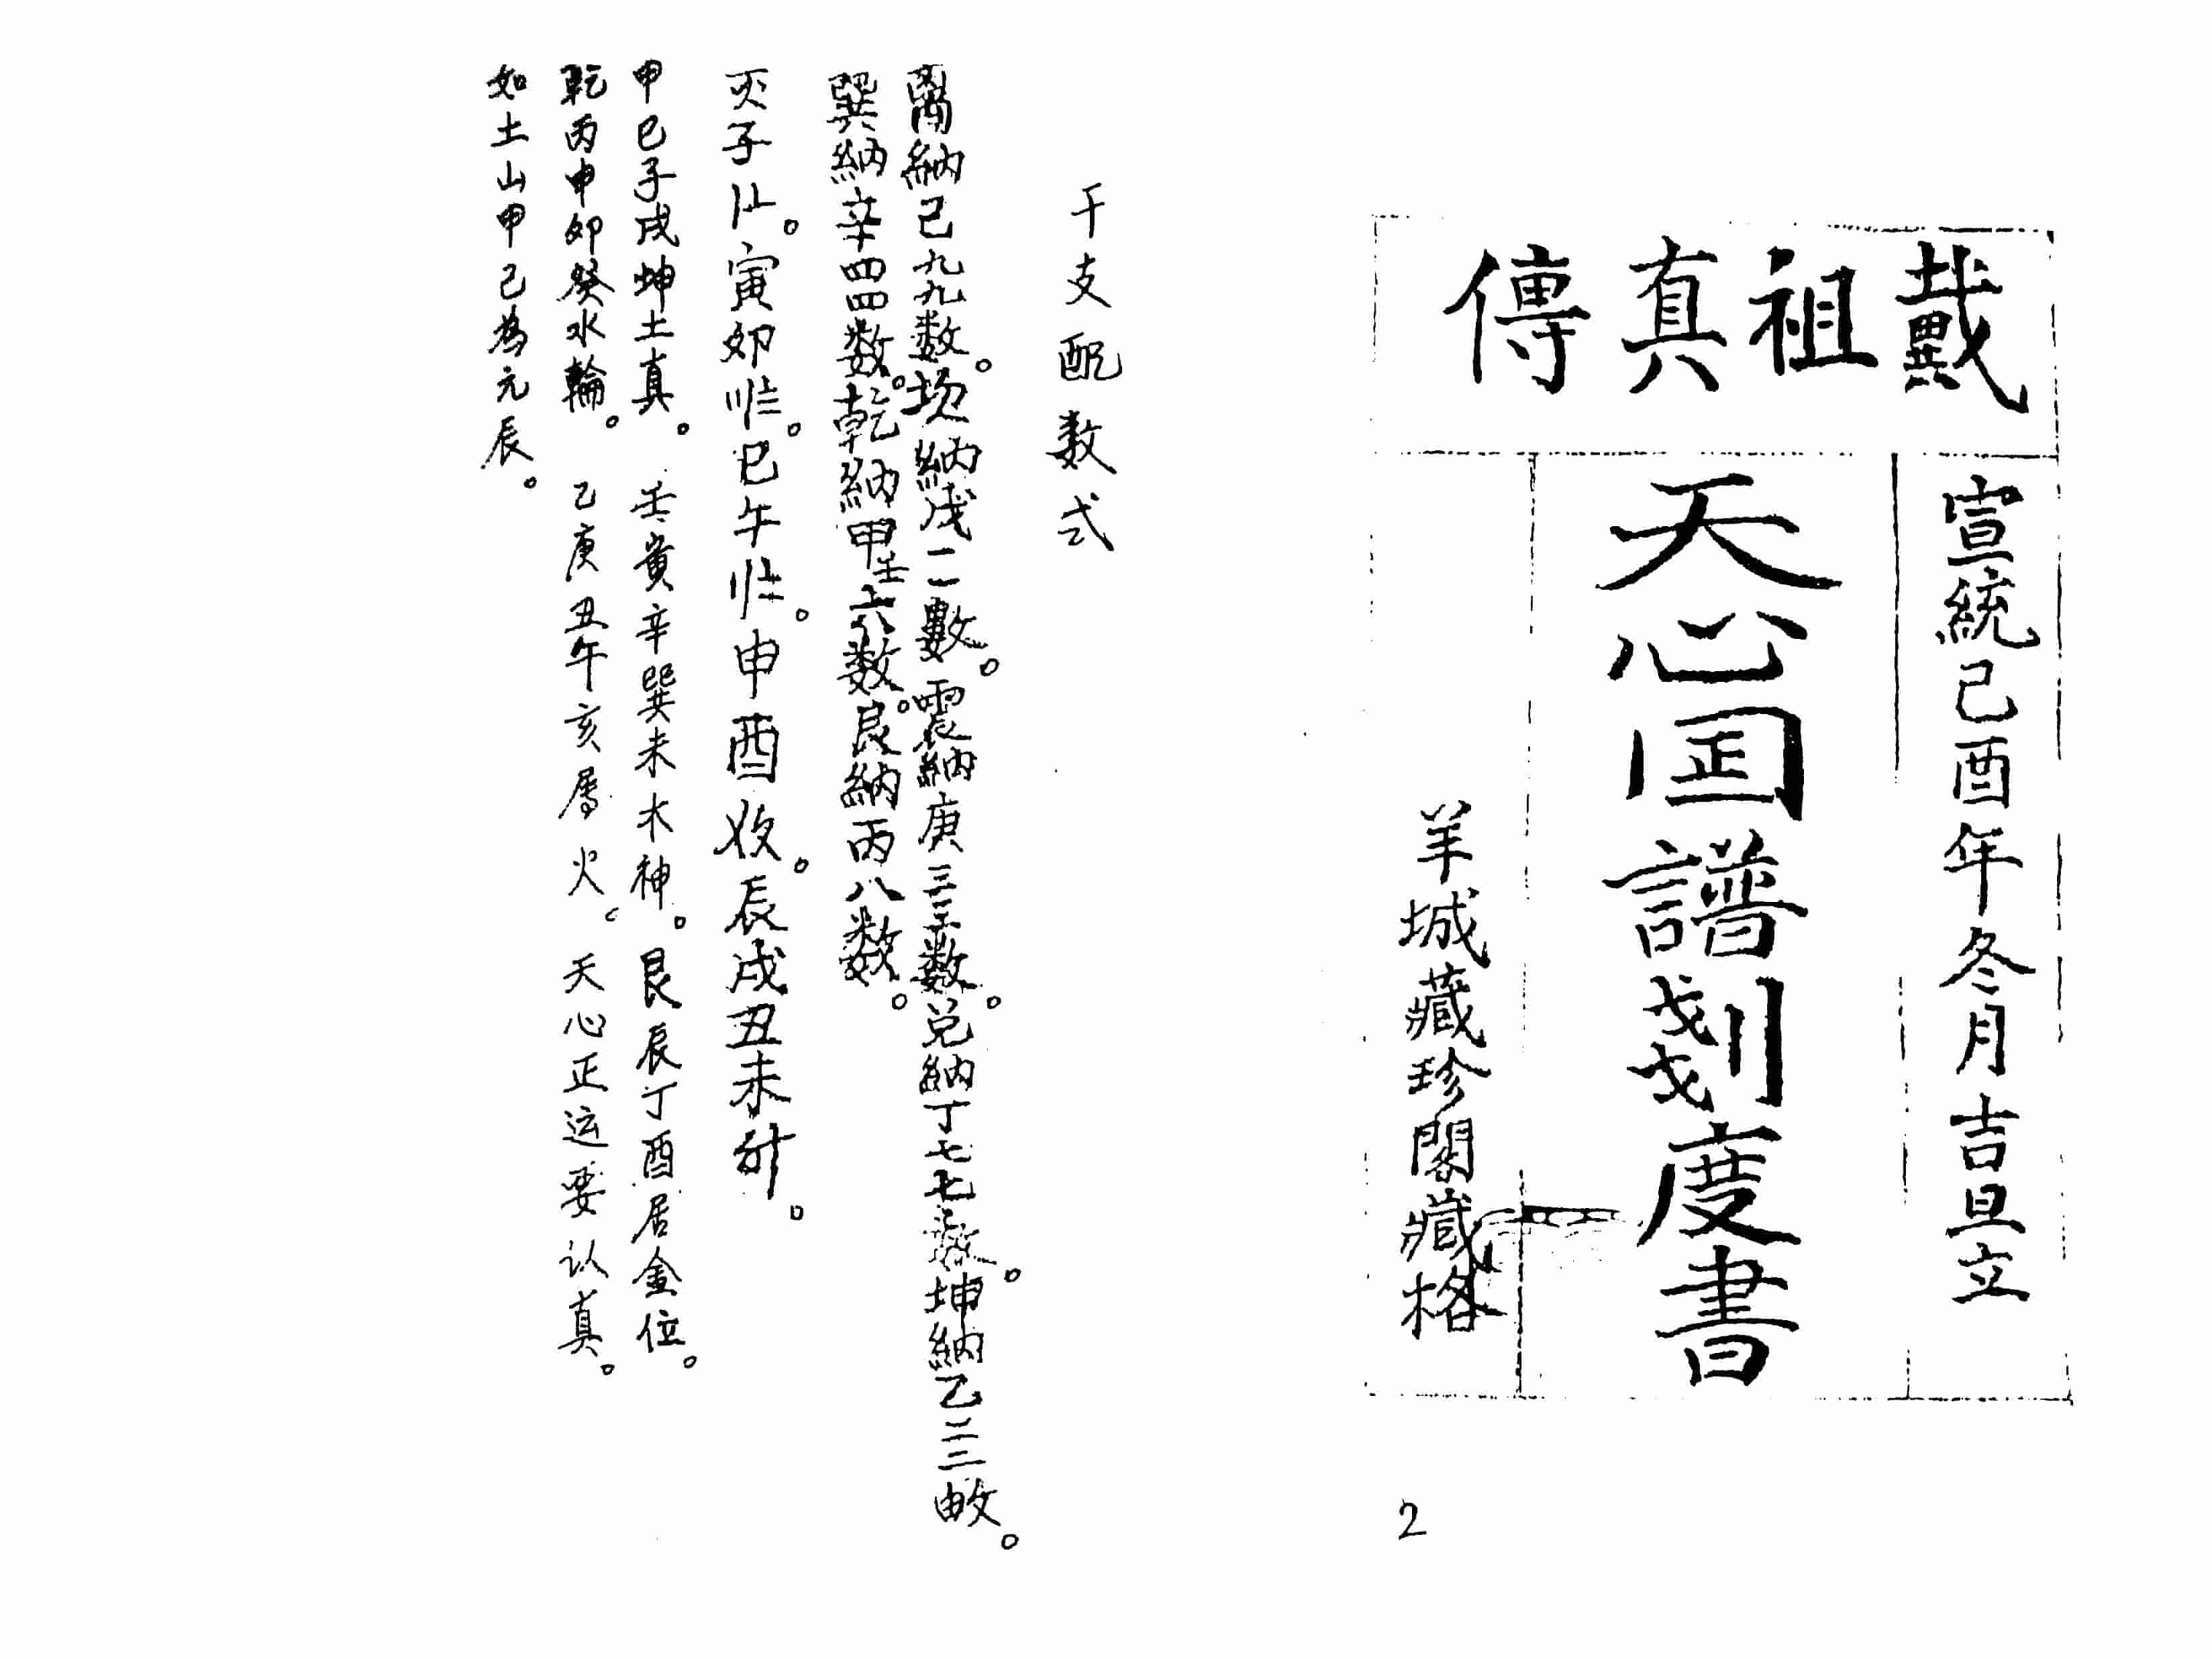 戴祖真傳
宣統己酉年冬月吉旦立
天心囸譜劃度書
羊城藏珍閣藏格
2
干支配数式
離納己九九数。坎納戊一二數。震納庚三三数。兑納丁七七数。坤納乙二三
巽納辛四四数。乾納甲壬六数。艮納丙八数。
亥子。寅卯。巳午。申酉。辰戌丑未。
甲巳子戌坤土真。壬寅辛巽未木神。艮辰丁酉居金位。
乾丙申卯癸水輪。乙庚丑午亥屬火。天心正运要认真。
如土山甲己為元辰。